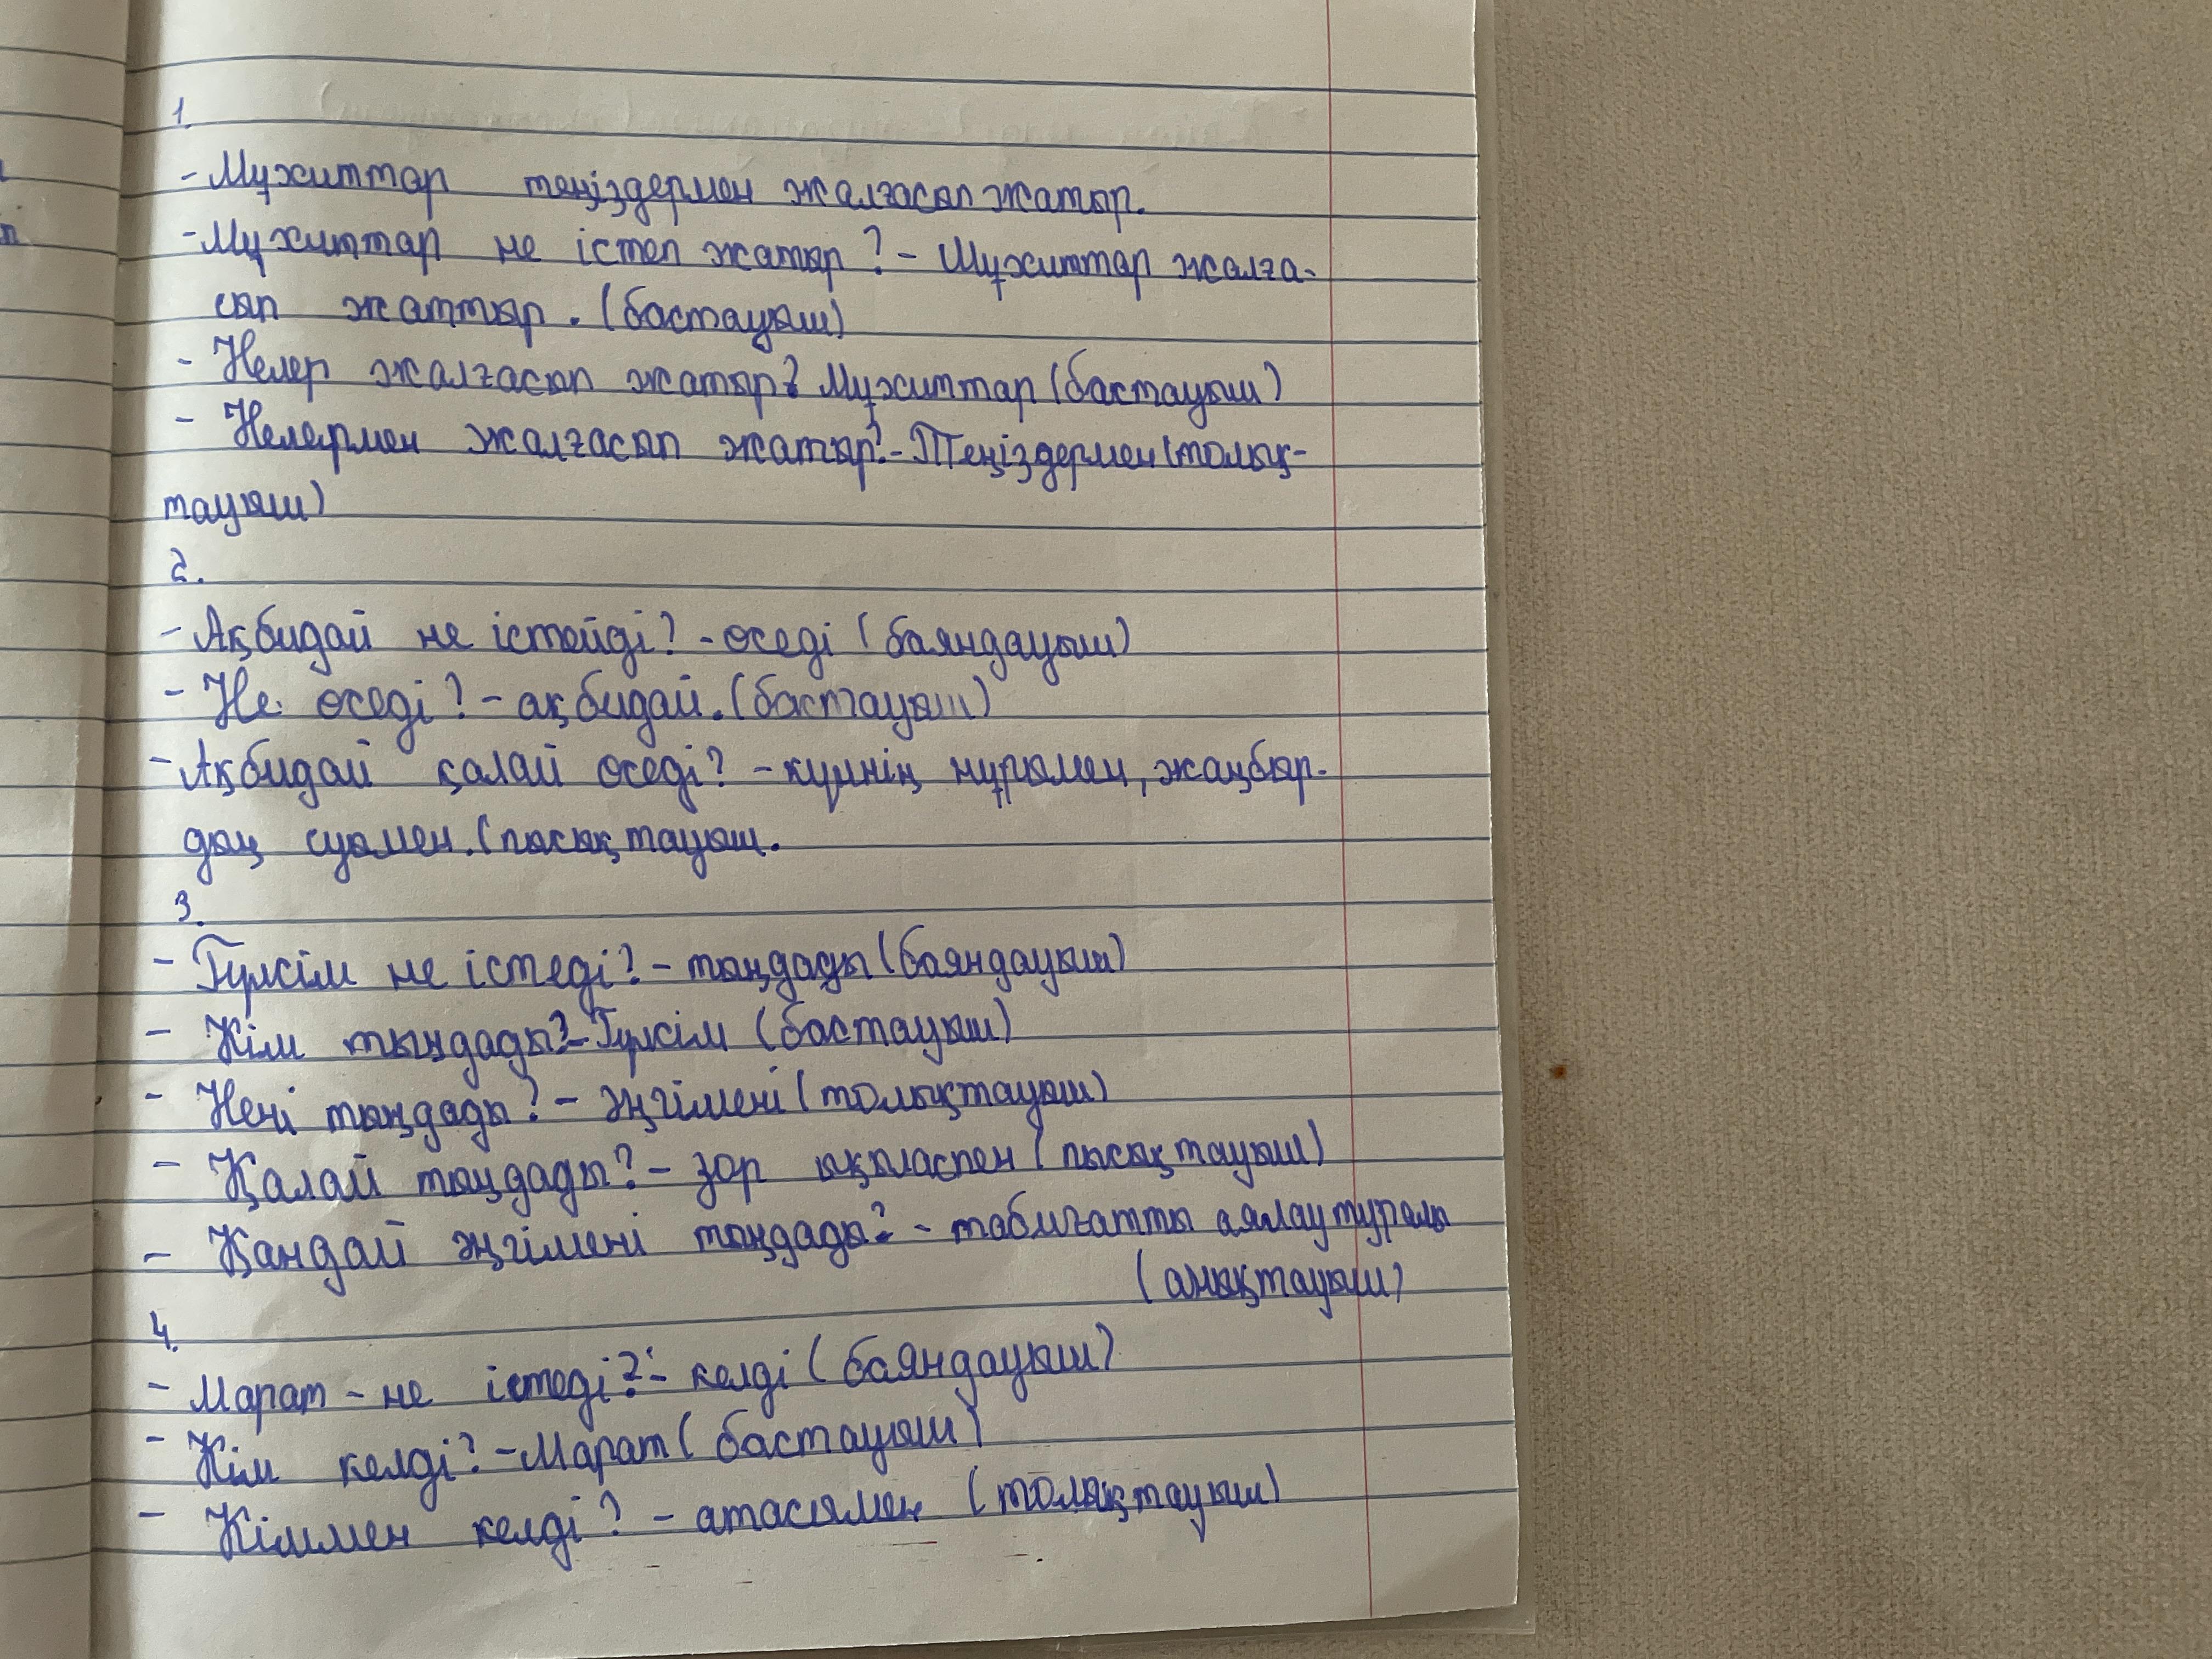 1.
- Мұхиттар теңіздермен жалғасып жатыр.
- Мұхиттар не істеп жатыр? - Мұхиттар жалға-
сып жаттыр. (бастауыш)
- Нелер жалғасып жатыр? Мұхиттар (бастауыш)
- Нелермен жалғасып жатыр? - Теңіздермен (толық-
тауыш)
2.
- Ақбидай не істейді? - өседі (баяндауыш)
- Не өседі? - ақбидай. (бастауыш)
- Ақбидай қалай өседі? - күннің нұрымен, жаңбыр-
дың суымен. (пысықтауыш.
3.
- Гүлсім не істеді? - тыңдады (баяндауыш)
- Кім тыңдады? - Гүлсім (бастауыш)
- Нені тыңдады? - әңгімені (толықтауыш)
- Қалай тыңдады? - зор ықыласпен (пысықтауыш)
- Қандай әңгімені тыңдады? - табиғатты аялау туралы
(анықтауыш)
4.
- Марат - не істеді? - келді (баяндауыш)
- Кім келді? - Марат (бастауыш)
- Кіммен келді? - атасымен (толықтауыш)